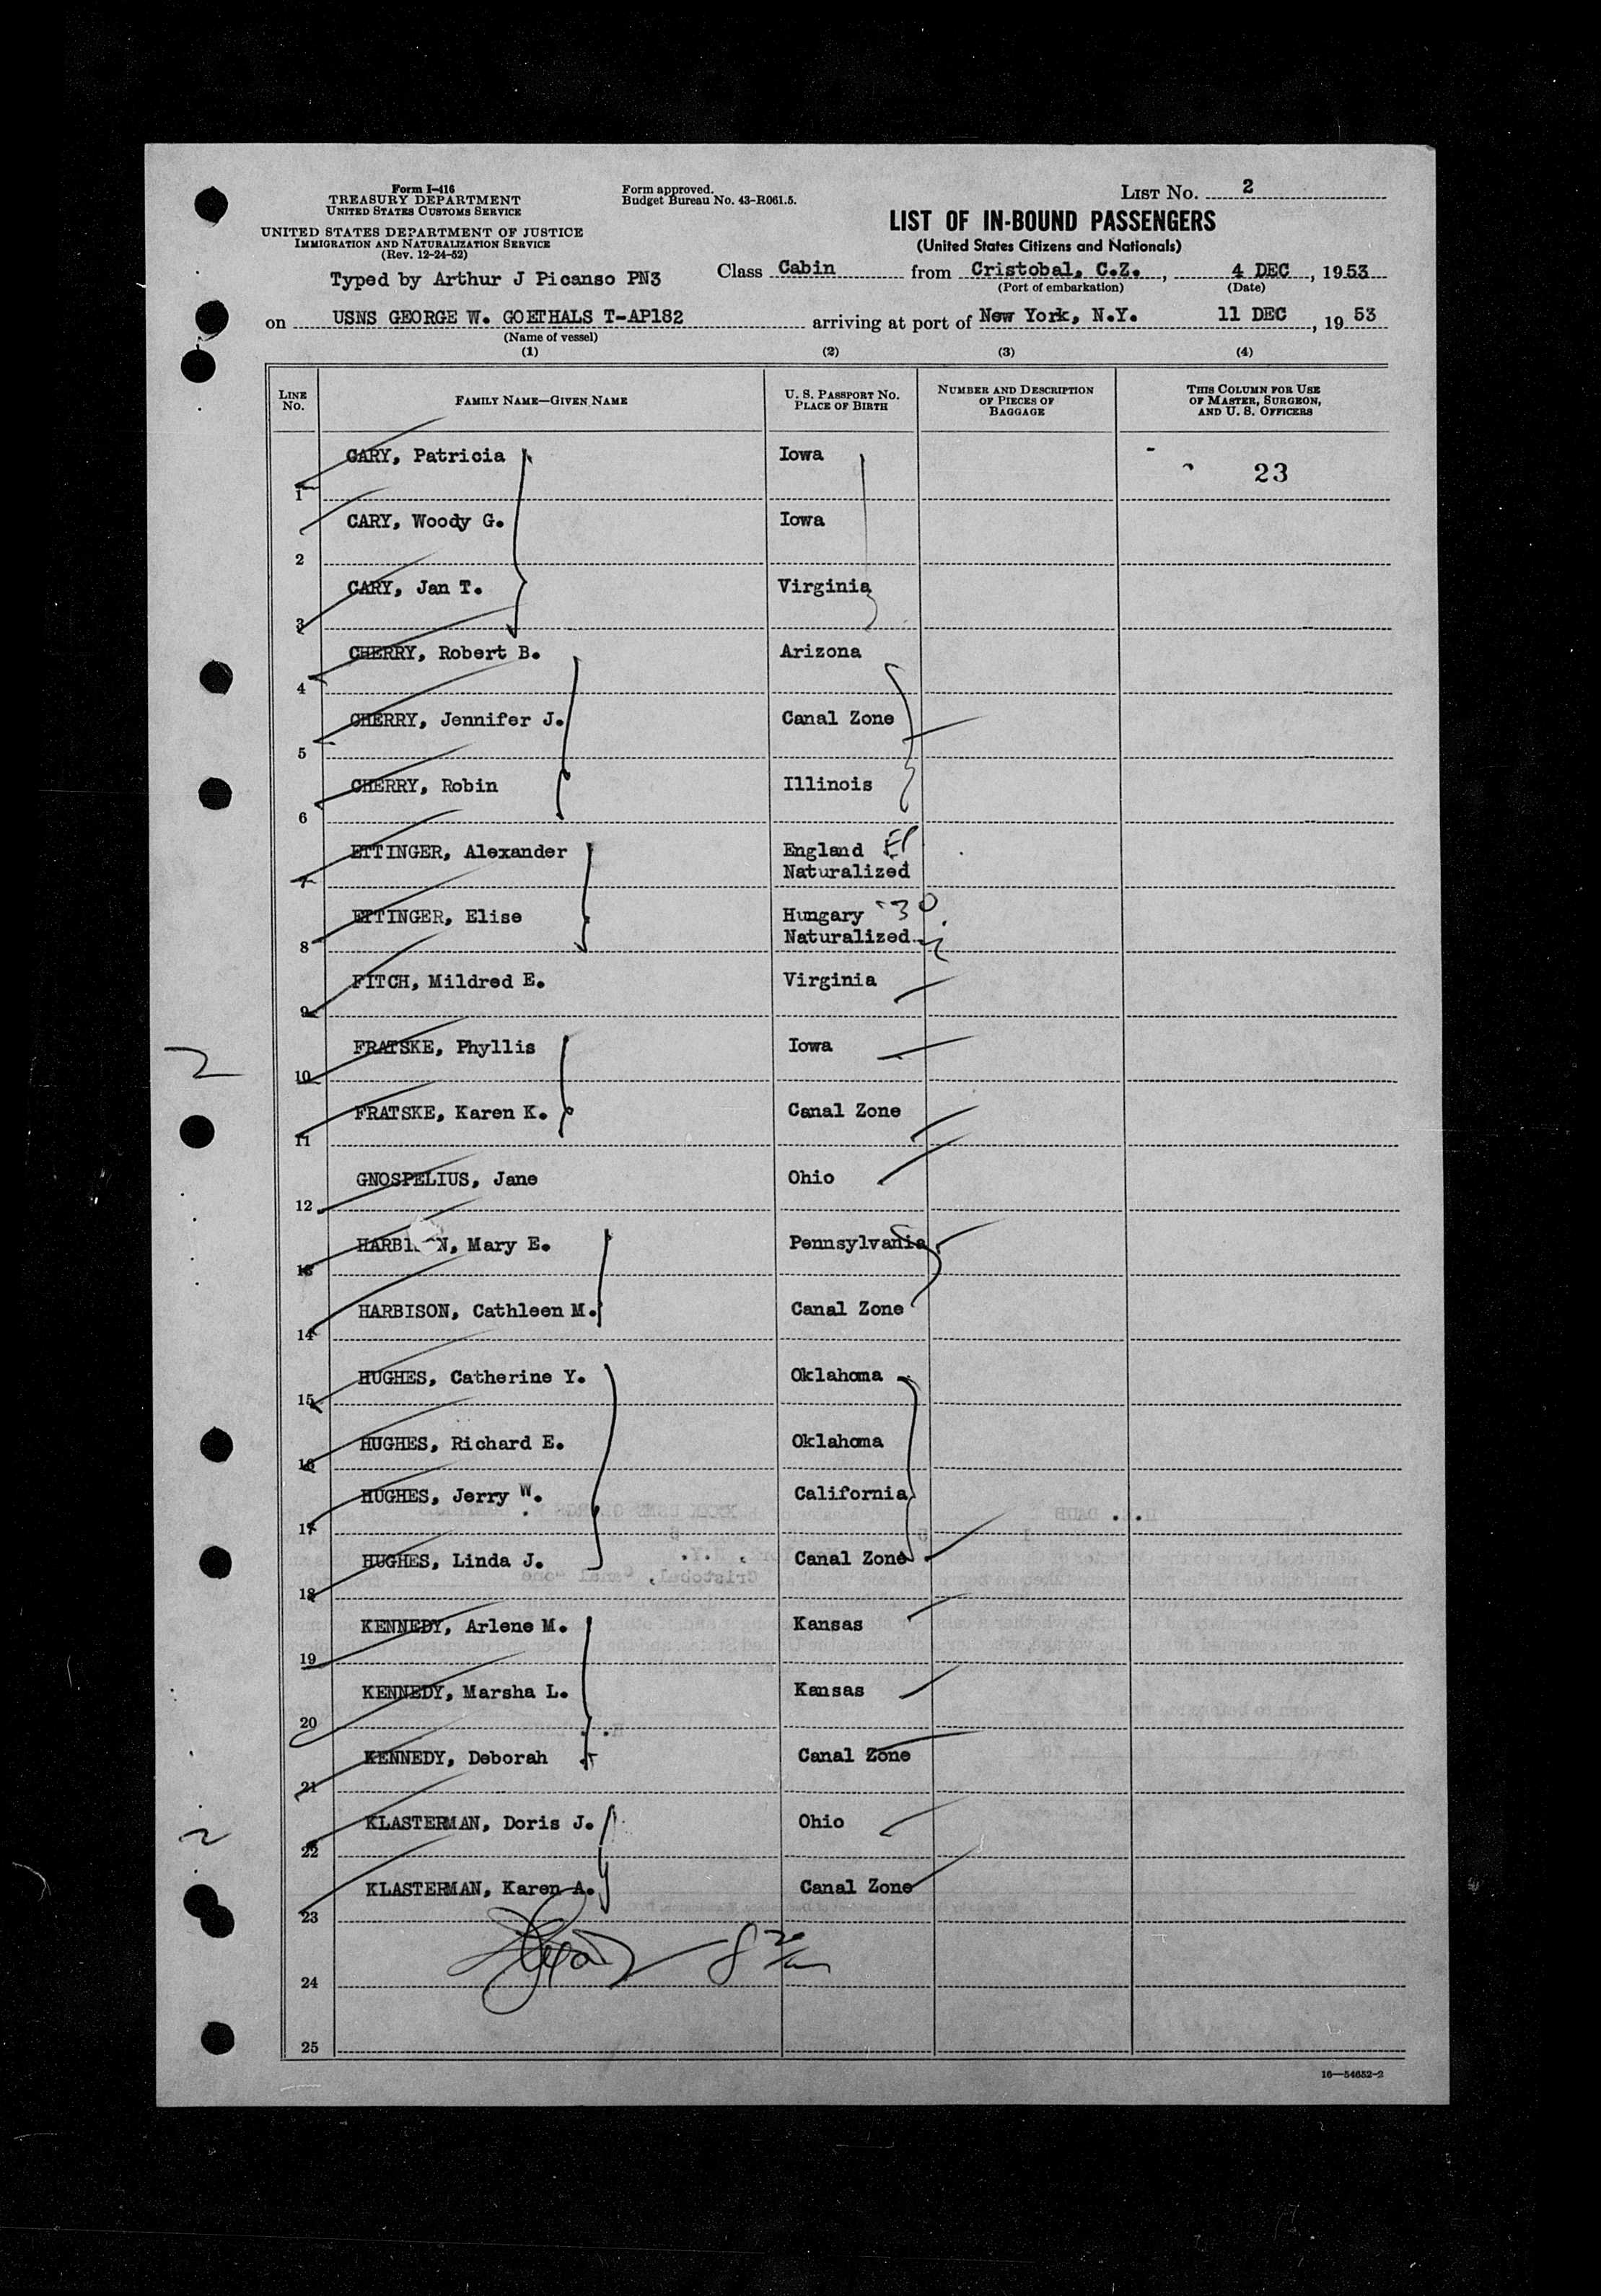 Form I-416
TREASURY DEPARTMENT
UNITED STATES CUSTOMS SERVICE
UNITED STATES DEPARTMENT OF JUSTICE
IMMIGRATION AND NATURALIZATION SERVICE
(Rev. 12-24-52)
Typed by Arthur J Picanso PN3
Form approved.
Budget Bureau No. 43-R061.5.
LIST NO. 2
LIST OF IN-BOUND PASSENGERS
(United States Citizens and Nationals)
Class Cabin from Cristobal, C.Z., 4 DEC, 1953
(Port of embarkation) (Date)
on USNS GEORGE W. GOETHALS T-AP182 arriving at port of New York, N.Y. 11 DEC, 19 53
(Name of vessel)
(1) (2) (3) (4)
LINE NO. FAMILY NAME—GIVEN NAME U. S. PASSPORT NO. PLACE OF BIRTH NUMBER AND DESCRIPTION OF PIECES OF BAGGAGE THIS COLUMN FOR USE OF MASTER, SURGEON, AND U. S. OFFICERS
1 CARY, Patricia Iowa 23
2 CARY, Woody G. Iowa
3 CARY, Jan T. Virginia
4 CHERRY, Robert B. Arizona
5 CHERRY, Jennifer J. Canal Zone
6 CHERRY, Robin Illinois
7 ETTINGER, Alexander England
Naturalized
8 ETTINGER, Elise Hungary
Naturalized
9 FITCH, Mildred E. Virginia
2
10 FRATSKE, Phyllis Iowa
11 FRATSKE, Karen K. Canal Zone
12 GNOSPELIUS, Jane Ohio
13 Mary E. Pennsylvania
14 HARBISON, Cathleen M. Canal Zone
15 HUGHES, Catherine Y. Oklahoma
16 HUGHES, Richard E. Oklahoma
17 HUGHES, Jerry W. California
18 HUGHES, Linda J. Canal Zone
19 KENNEDY, Arlene M. Kansas
20 KENNEDY, Marsha L. Kansas
21 KENNEDY, Deborah Canal Zone
2
22 KLASTERMAN, Doris J. Ohio
23 KLASTERMAN, Karen A. Canal Zone
24
25
16—54652-2